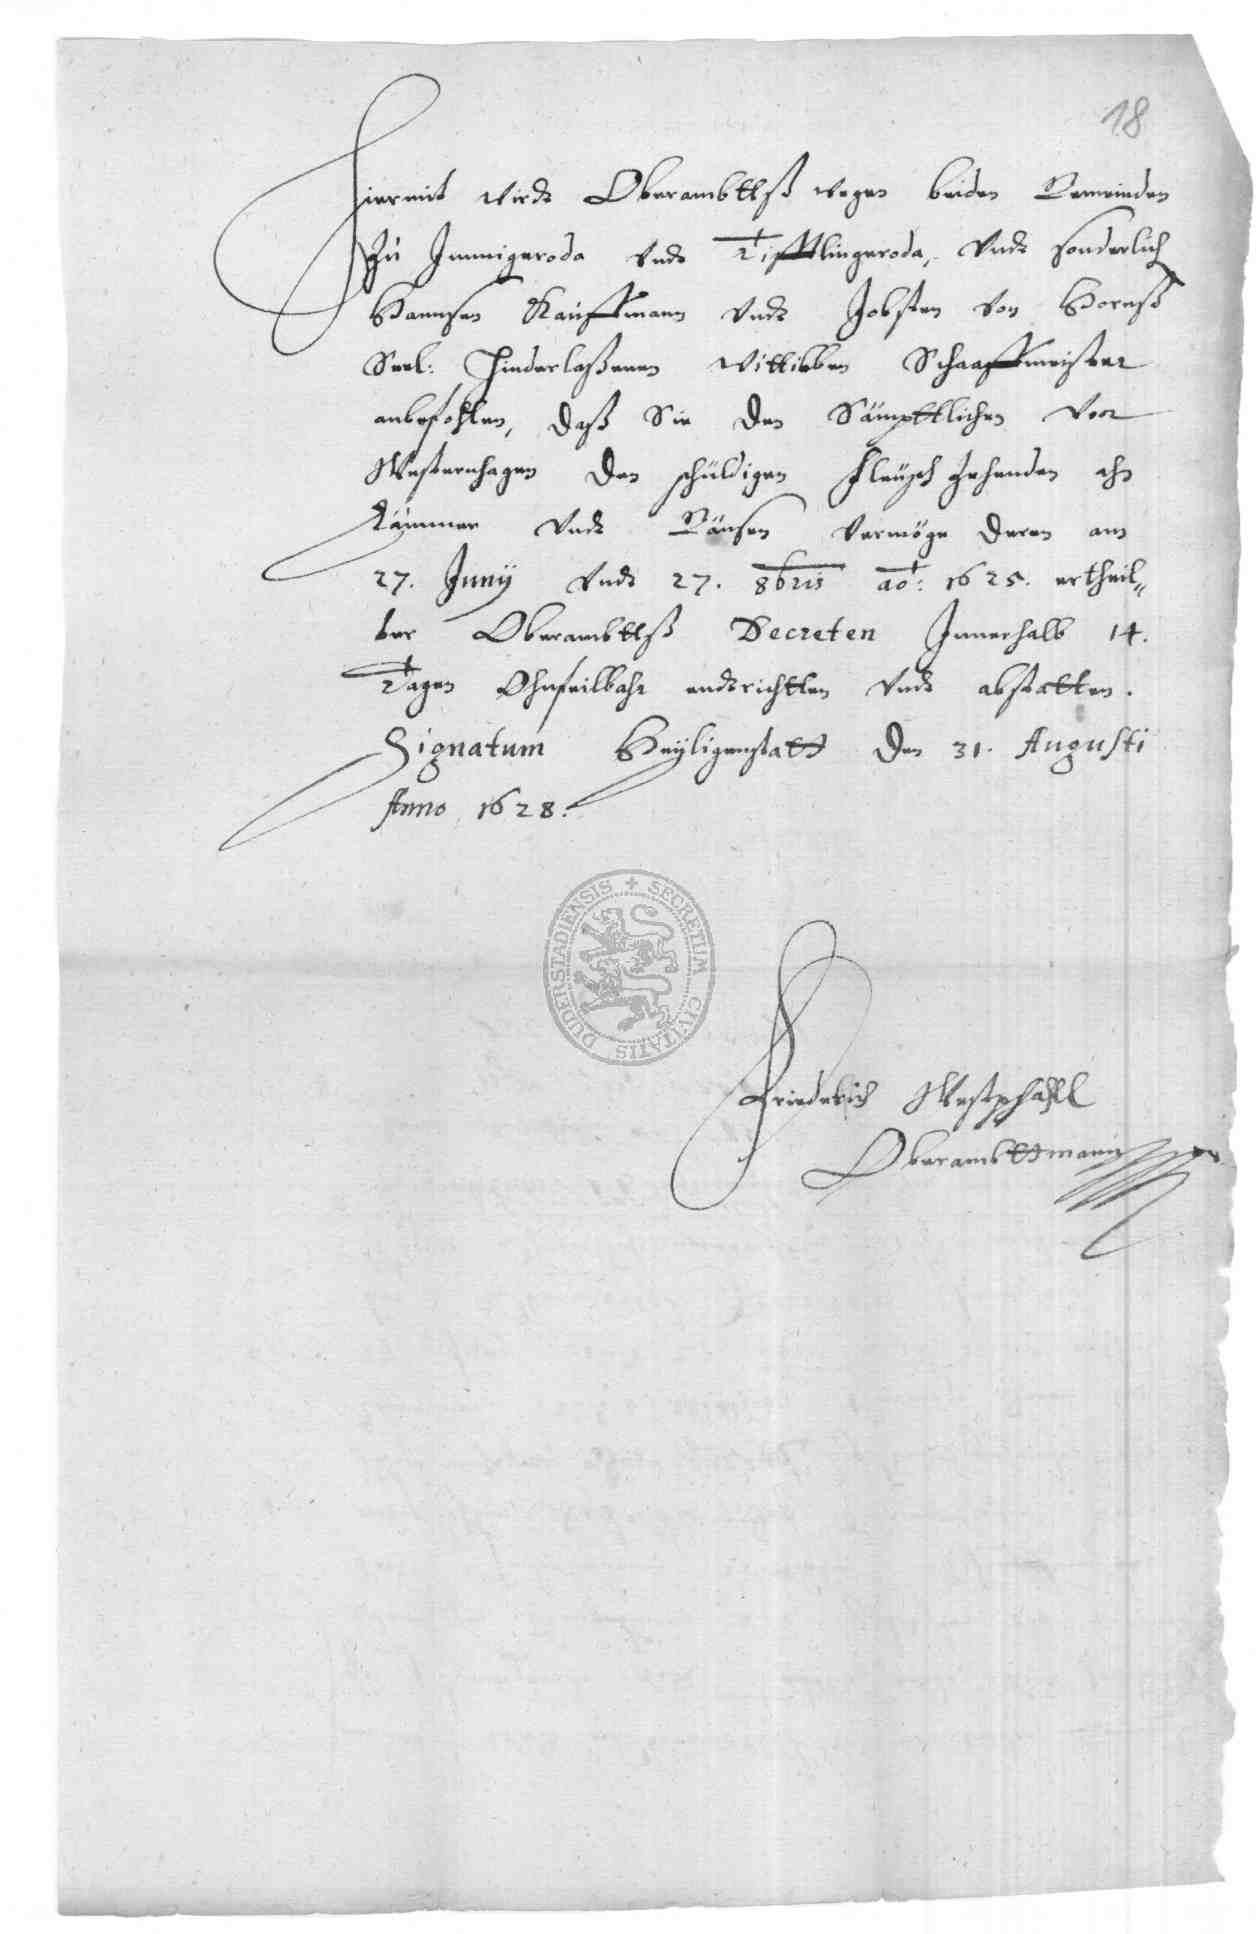 18
Hiermit wirdt Oberambttß wegen beiden Gemeinden
Zu Immigeroda vndt Tifftlingeroda, vndt sonderlich
Hannsen Kauffmann vndt Jobsten von Hornß
Seel: Hinderlaßenen Wittieben Schaaffmeister
anbefohlen, daß Sie den Sämpttlichen von
Westernhagen den schüldigen fleisch Zehenden ahn
Lämmer vndt Gänsen vermöge deren am
27. Junij vndt 27. 8bris ao: 1625. ertheil„
ter Oberambttß Decreten Innerhalb 14.
Tagen Ohnfeilbahr endtrichtten vndt abstatten.
Signatum Heyligenstatt den 31. Augusti
Anno 1628.
SECRETUM CIVITATIS DUDERSTADIENSIS
Friederich Westphall
Oberambttmann